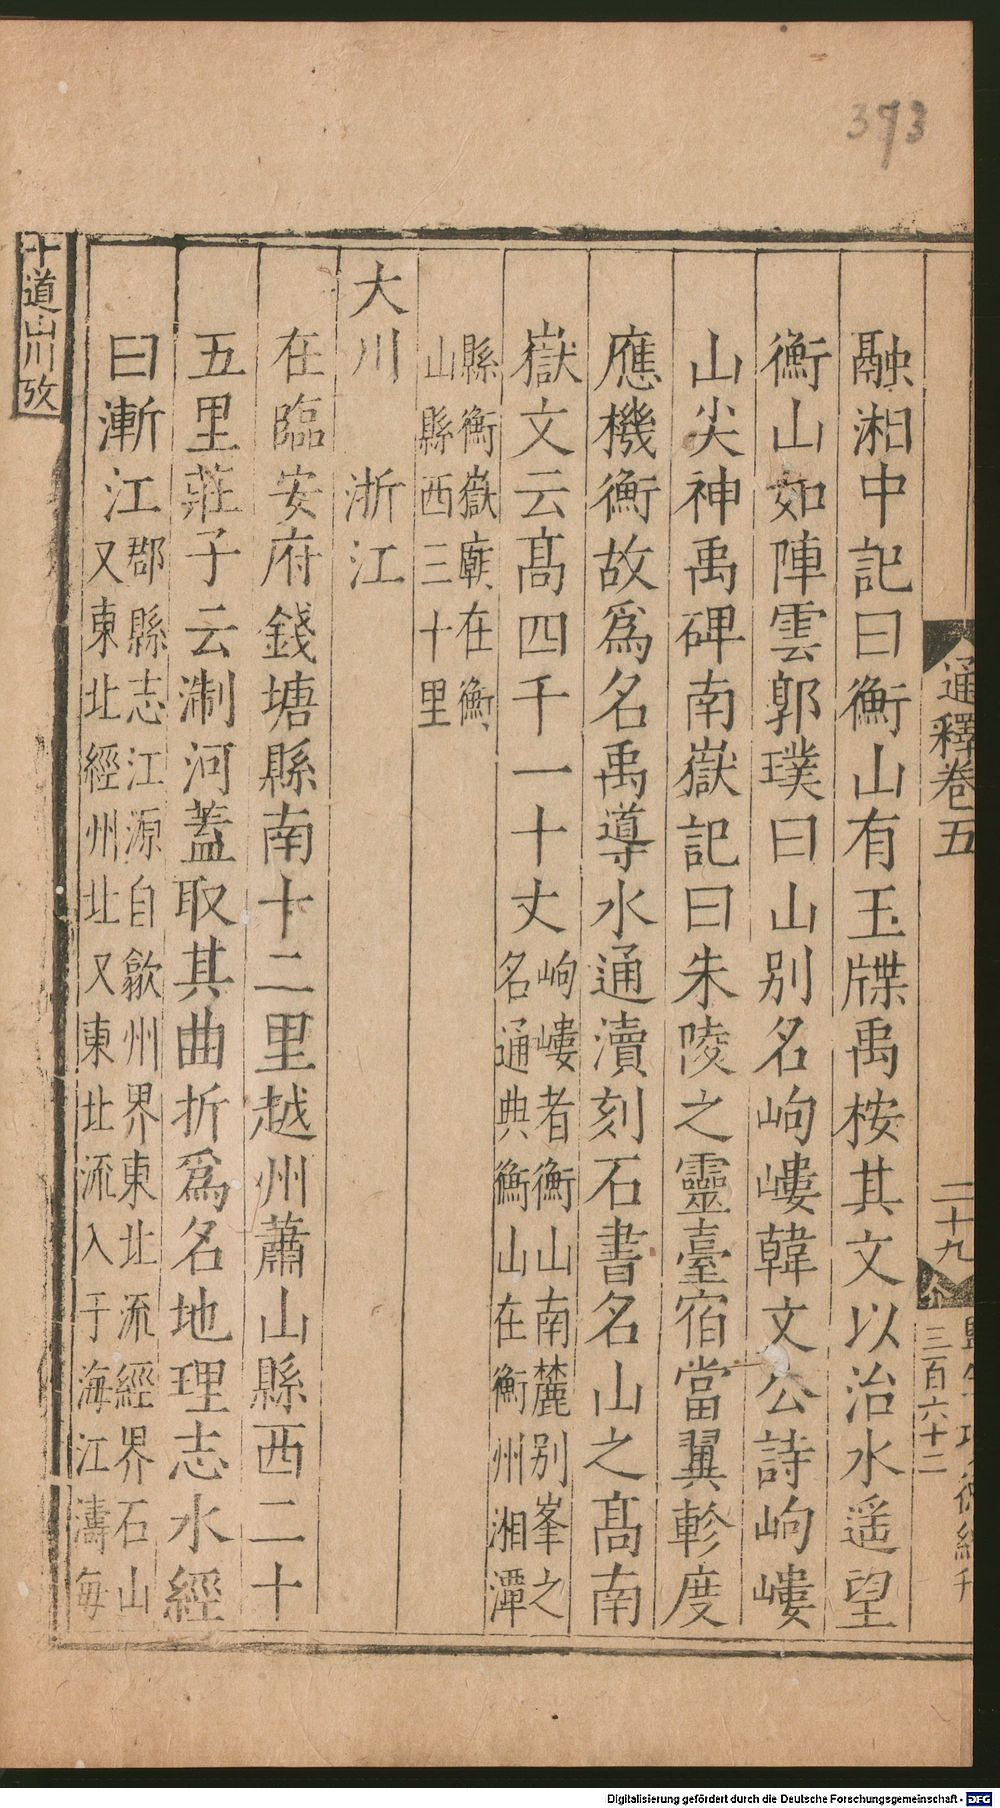 373
通釋卷五
二十九
三百六十二
融湘中記曰衡山有玉牒禹桉其文以治水遥望
衡山如陣雲郭璞曰山别名岣嶁韓文公詩岣嶁
山尖神禹碑南嶽記曰朱陵之靈臺宿當翼軫度
應機衡故爲名禹導水通瀆刻石書名山之髙南
嶽文云髙四千一十丈岣嶁者衡山南麓别峯之
名通典衡山在衡州湘潭
縣衡嶽廟在衡
山縣西三十里
大川　浙江
在臨安府錢塘縣南十二里越州蕭山縣西二十
五里莊子云淛河蓋取其曲折爲名地理志水經
曰漸江郡縣志江源自歙州界東北流經界石山
又東北經州北又東北流入于海江濤每
十道山川攷
Digitalisierung gefördert durch die Deutsche Forschungsgemeinschaft - DFG